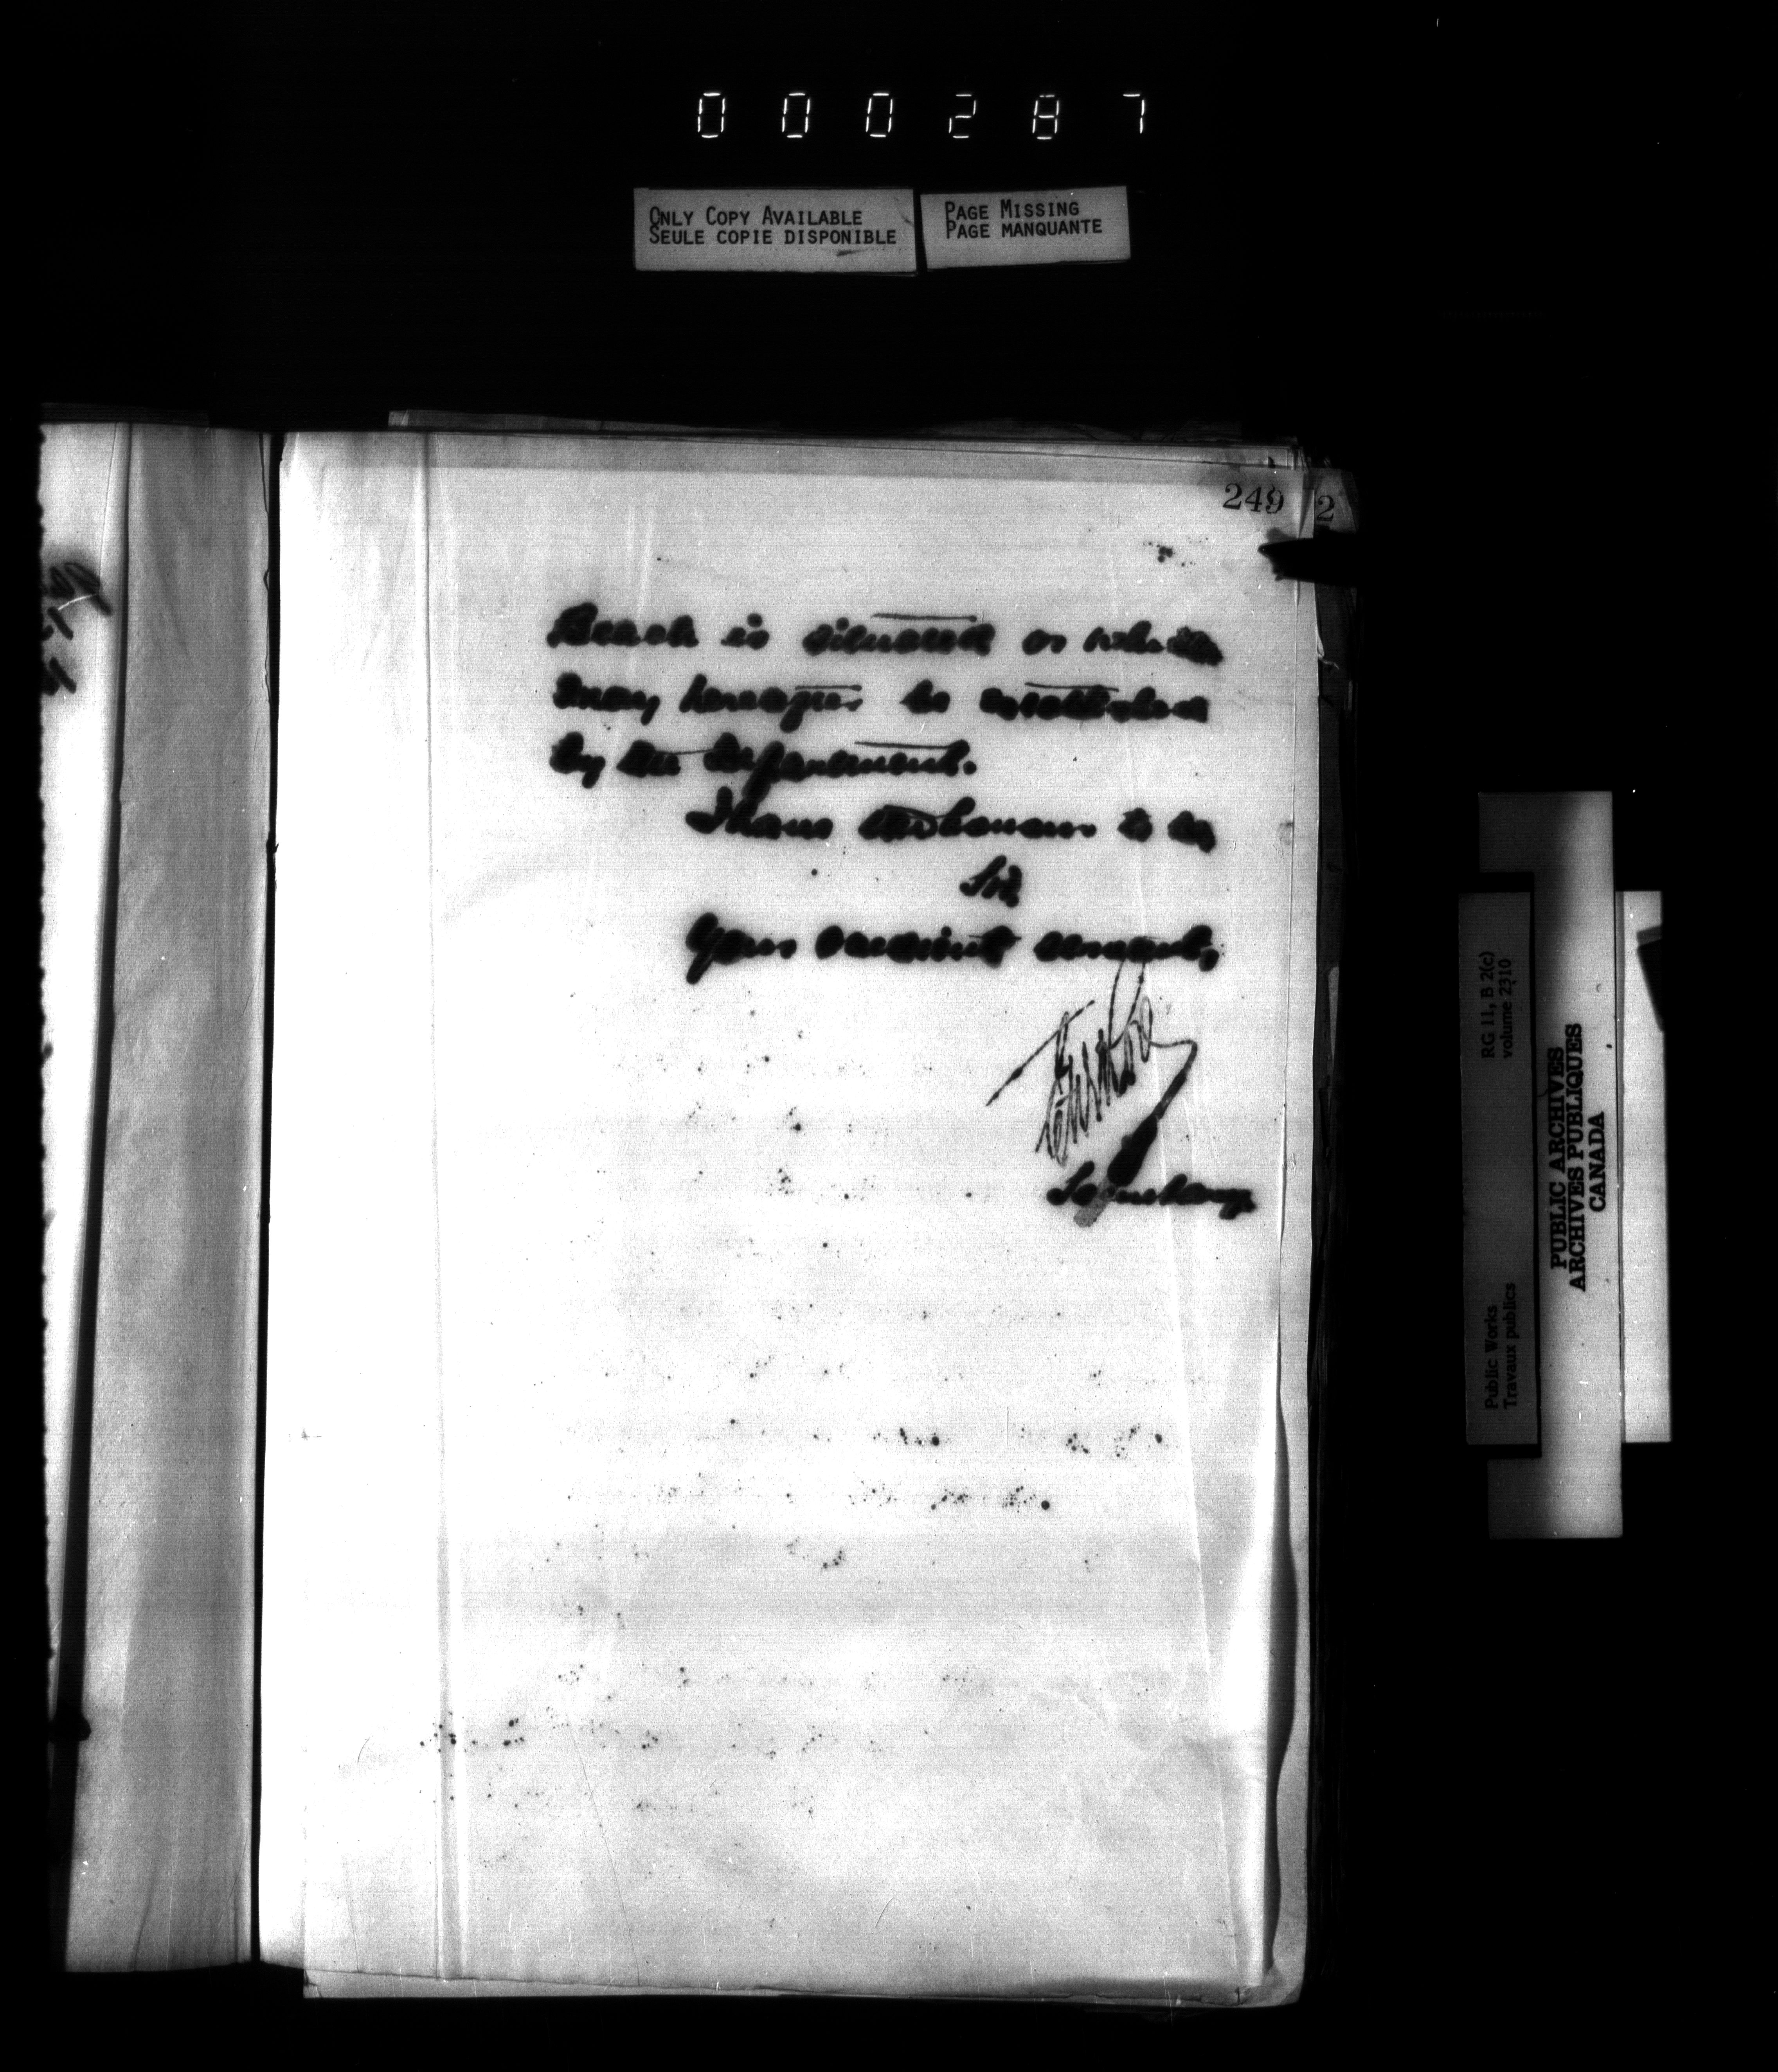 000287
ONLY COPY AVAILABLE
SEULE COPIE DISPONIBLE
PAGE MISSING
PAGE MANQUANTE
249
2
Beach is situated or which
may hereafter be established
by the Department.
I have the honour to be
Sir,
Your obedient servant,
Secretary
RG 11, B 2(c)
volume 2310
Public Works
Travaux publics
PUBLIC ARCHIVES
ARCHIVES PUBLIQUES
CANADA